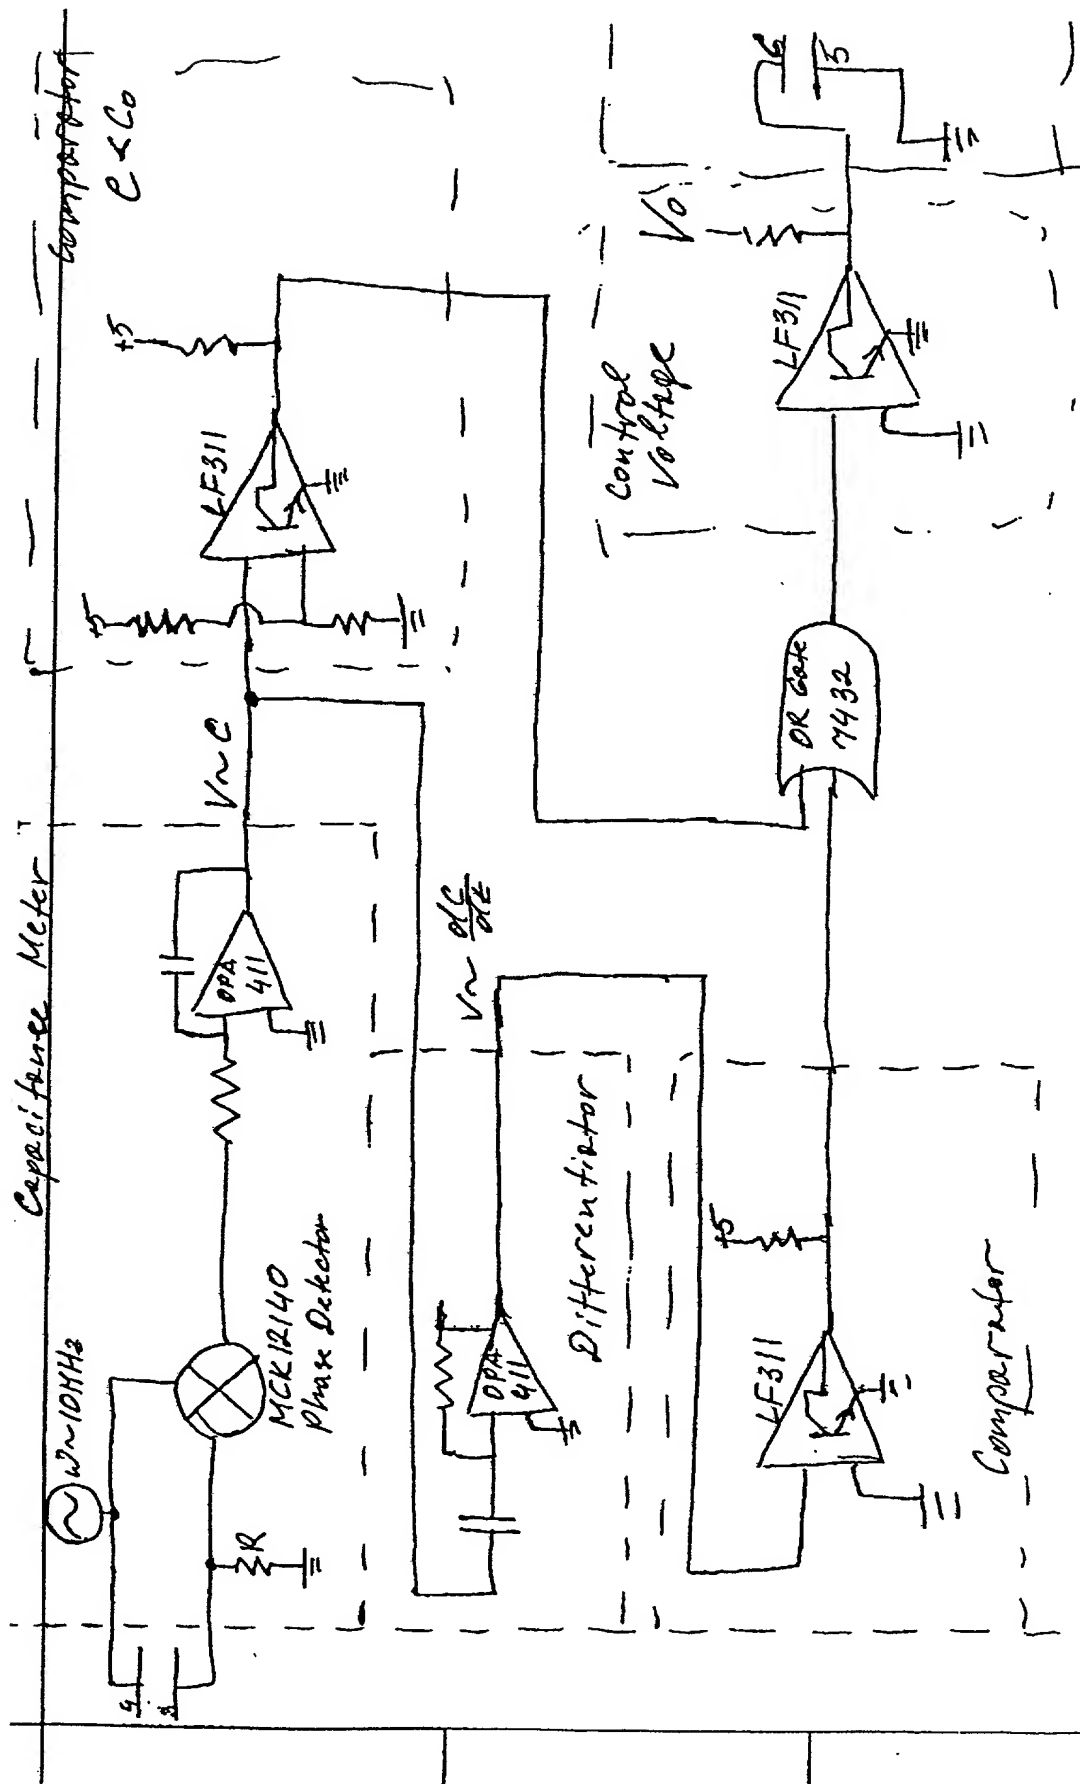 Capacitance Meter
Comparator
C < Co
ω~10MHz
4
3
R
MCK12140
Phase Detector
OPA
411
V~C
+5
LF311
+5
OPA
411
Differentiator
V~ dC/dt
LF311
+5
Comparator
OR Gate
7432
Control
Voltage
LF311
Vo
6
5